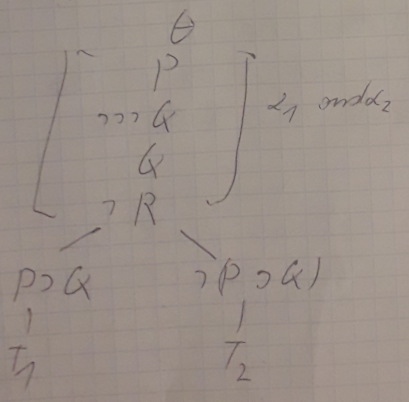 θ
P
¬¬¬Q
Q
¬R
α₁ and α₂
P⊃Q ¬(P⊃Q)
T₁ T₂